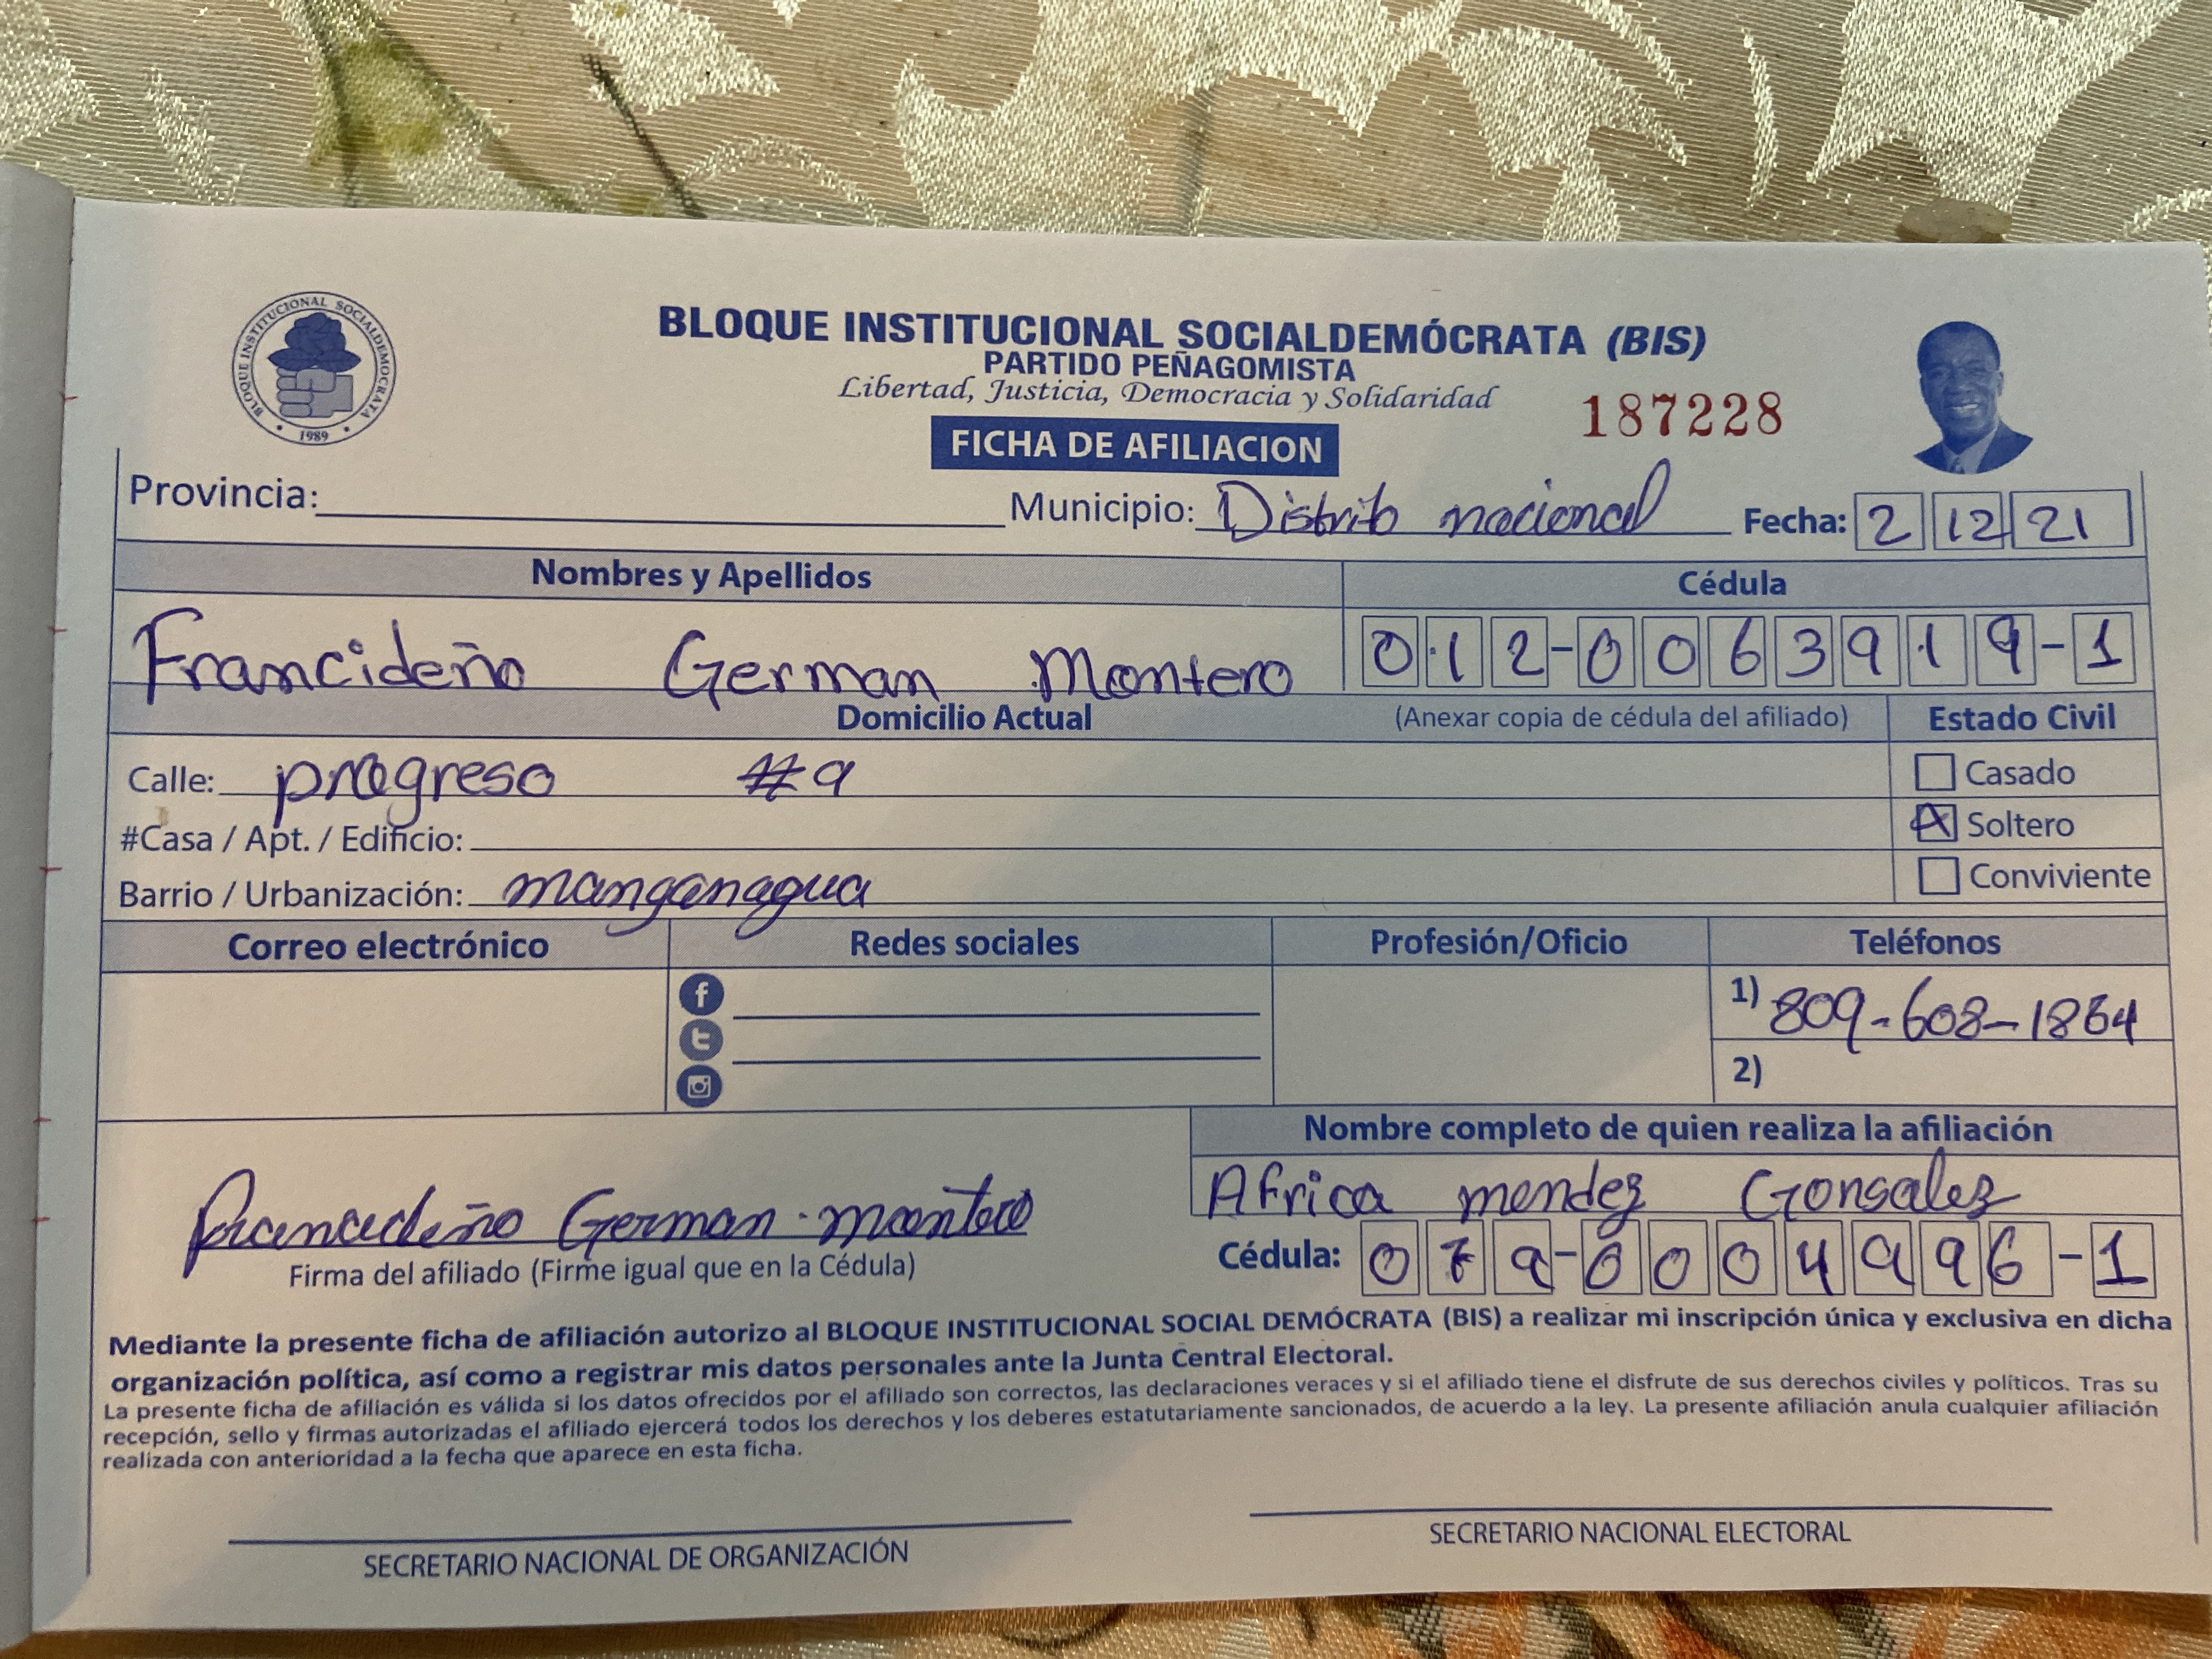 BLOQUE INSTITUCIONAL SOCIALDEMOCRATA
1989
BLOQUE INSTITUCIONAL SOCIALDEMÓCRATA (BIS)
PARTIDO PEÑAGOMISTA
Libertad, Justicia, Democracia y Solidaridad
187228
FICHA DE AFILIACION
Provincia: Municipio: Distrito nacional Fecha: 2 12 21
Nombres y Apellidos Cédula
Francideño German Montero 012-0063919-1
Domicilio Actual (Anexar copia de cédula del afiliado) Estado Civil
Calle: progreso #9 Casado
#Casa / Apt. / Edificio: X Soltero
Barrio / Urbanización: manganagua Conviviente
Correo electrónico Redes sociales Profesión/Oficio Teléfonos
1) 809-608-1864
2)
Nombre completo de quien realiza la afiliación
Africa mendez Gonsalez
Francideño German montero
Firma del afiliado (Firme igual que en la Cédula) Cédula: 079-0004996-1
Mediante la presente ficha de afiliación autorizo al BLOQUE INSTITUCIONAL SOCIAL DEMÓCRATA (BIS) a realizar mi inscripción única y exclusiva en dicha
organización política, así como a registrar mis datos personales ante la Junta Central Electoral.
La presente ficha de afiliación es válida si los datos ofrecidos por el afiliado son correctos, las declaraciones veraces y si el afiliado tiene el disfrute de sus derechos civiles y políticos. Tras su
recepción, sello y firmas autorizadas el afiliado ejercerá todos los derechos y los deberes estatutariamente sancionados, de acuerdo a la ley. La presente afiliación anula cualquier afiliación
realizada con anterioridad a la fecha que aparece en esta ficha.
SECRETARIO NACIONAL DE ORGANIZACIÓN SECRETARIO NACIONAL ELECTORAL